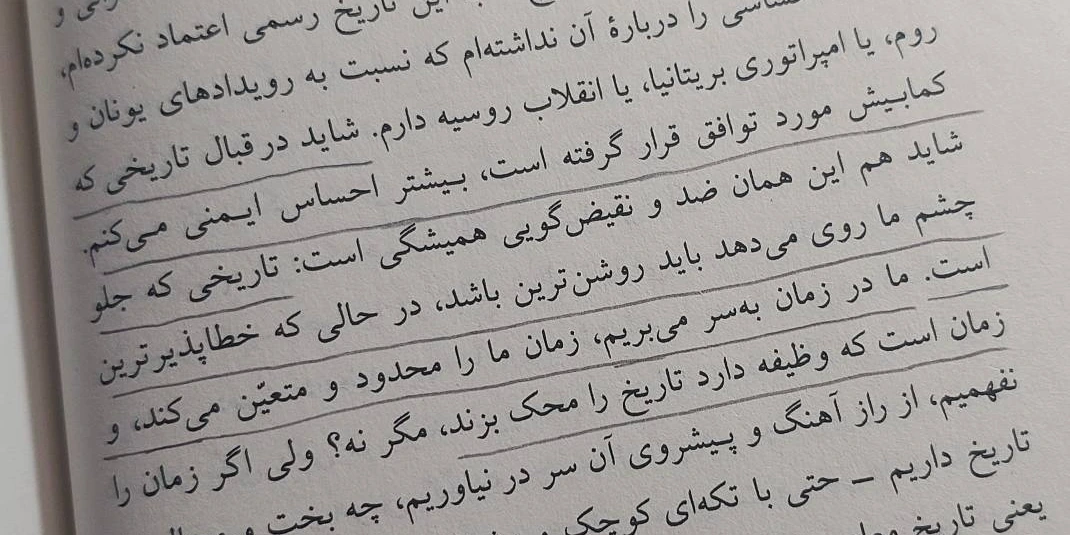 این تاریخ رسمی اعتماد نکرده‌ام،
را دربارهٔ آن نداشته‌ام که نسبت به رویدادهای یونان و
روم، یا امپراتوری بریتانیا، یا انقلاب روسیه دارم. شاید در قبال تاریخی که
کمابیش مورد توافق قرار گرفته است، بیشتر احساس ایمنی می‌کنم.
شاید هم این همان ضد و نقیض‌گویی همیشگی است: تاریخی که جلو
چشم ما روی می‌دهد باید روشن‌ترین باشد، در حالی که خطاپذیرترین
است. ما در زمان به‌سر می‌بریم، زمان ما را محدود و متعیّن می‌کند، و
زمان است که وظیفه دارد تاریخ را محک بزند، مگر نه؟ ولی اگر زمان را
نفهمیم، از راز آهنگ و پیشروی آن سر در نیاوریم، چه بخت و
تاریخ داریم – حتی با تکه‌ای کوچک
یعنی تاریخ